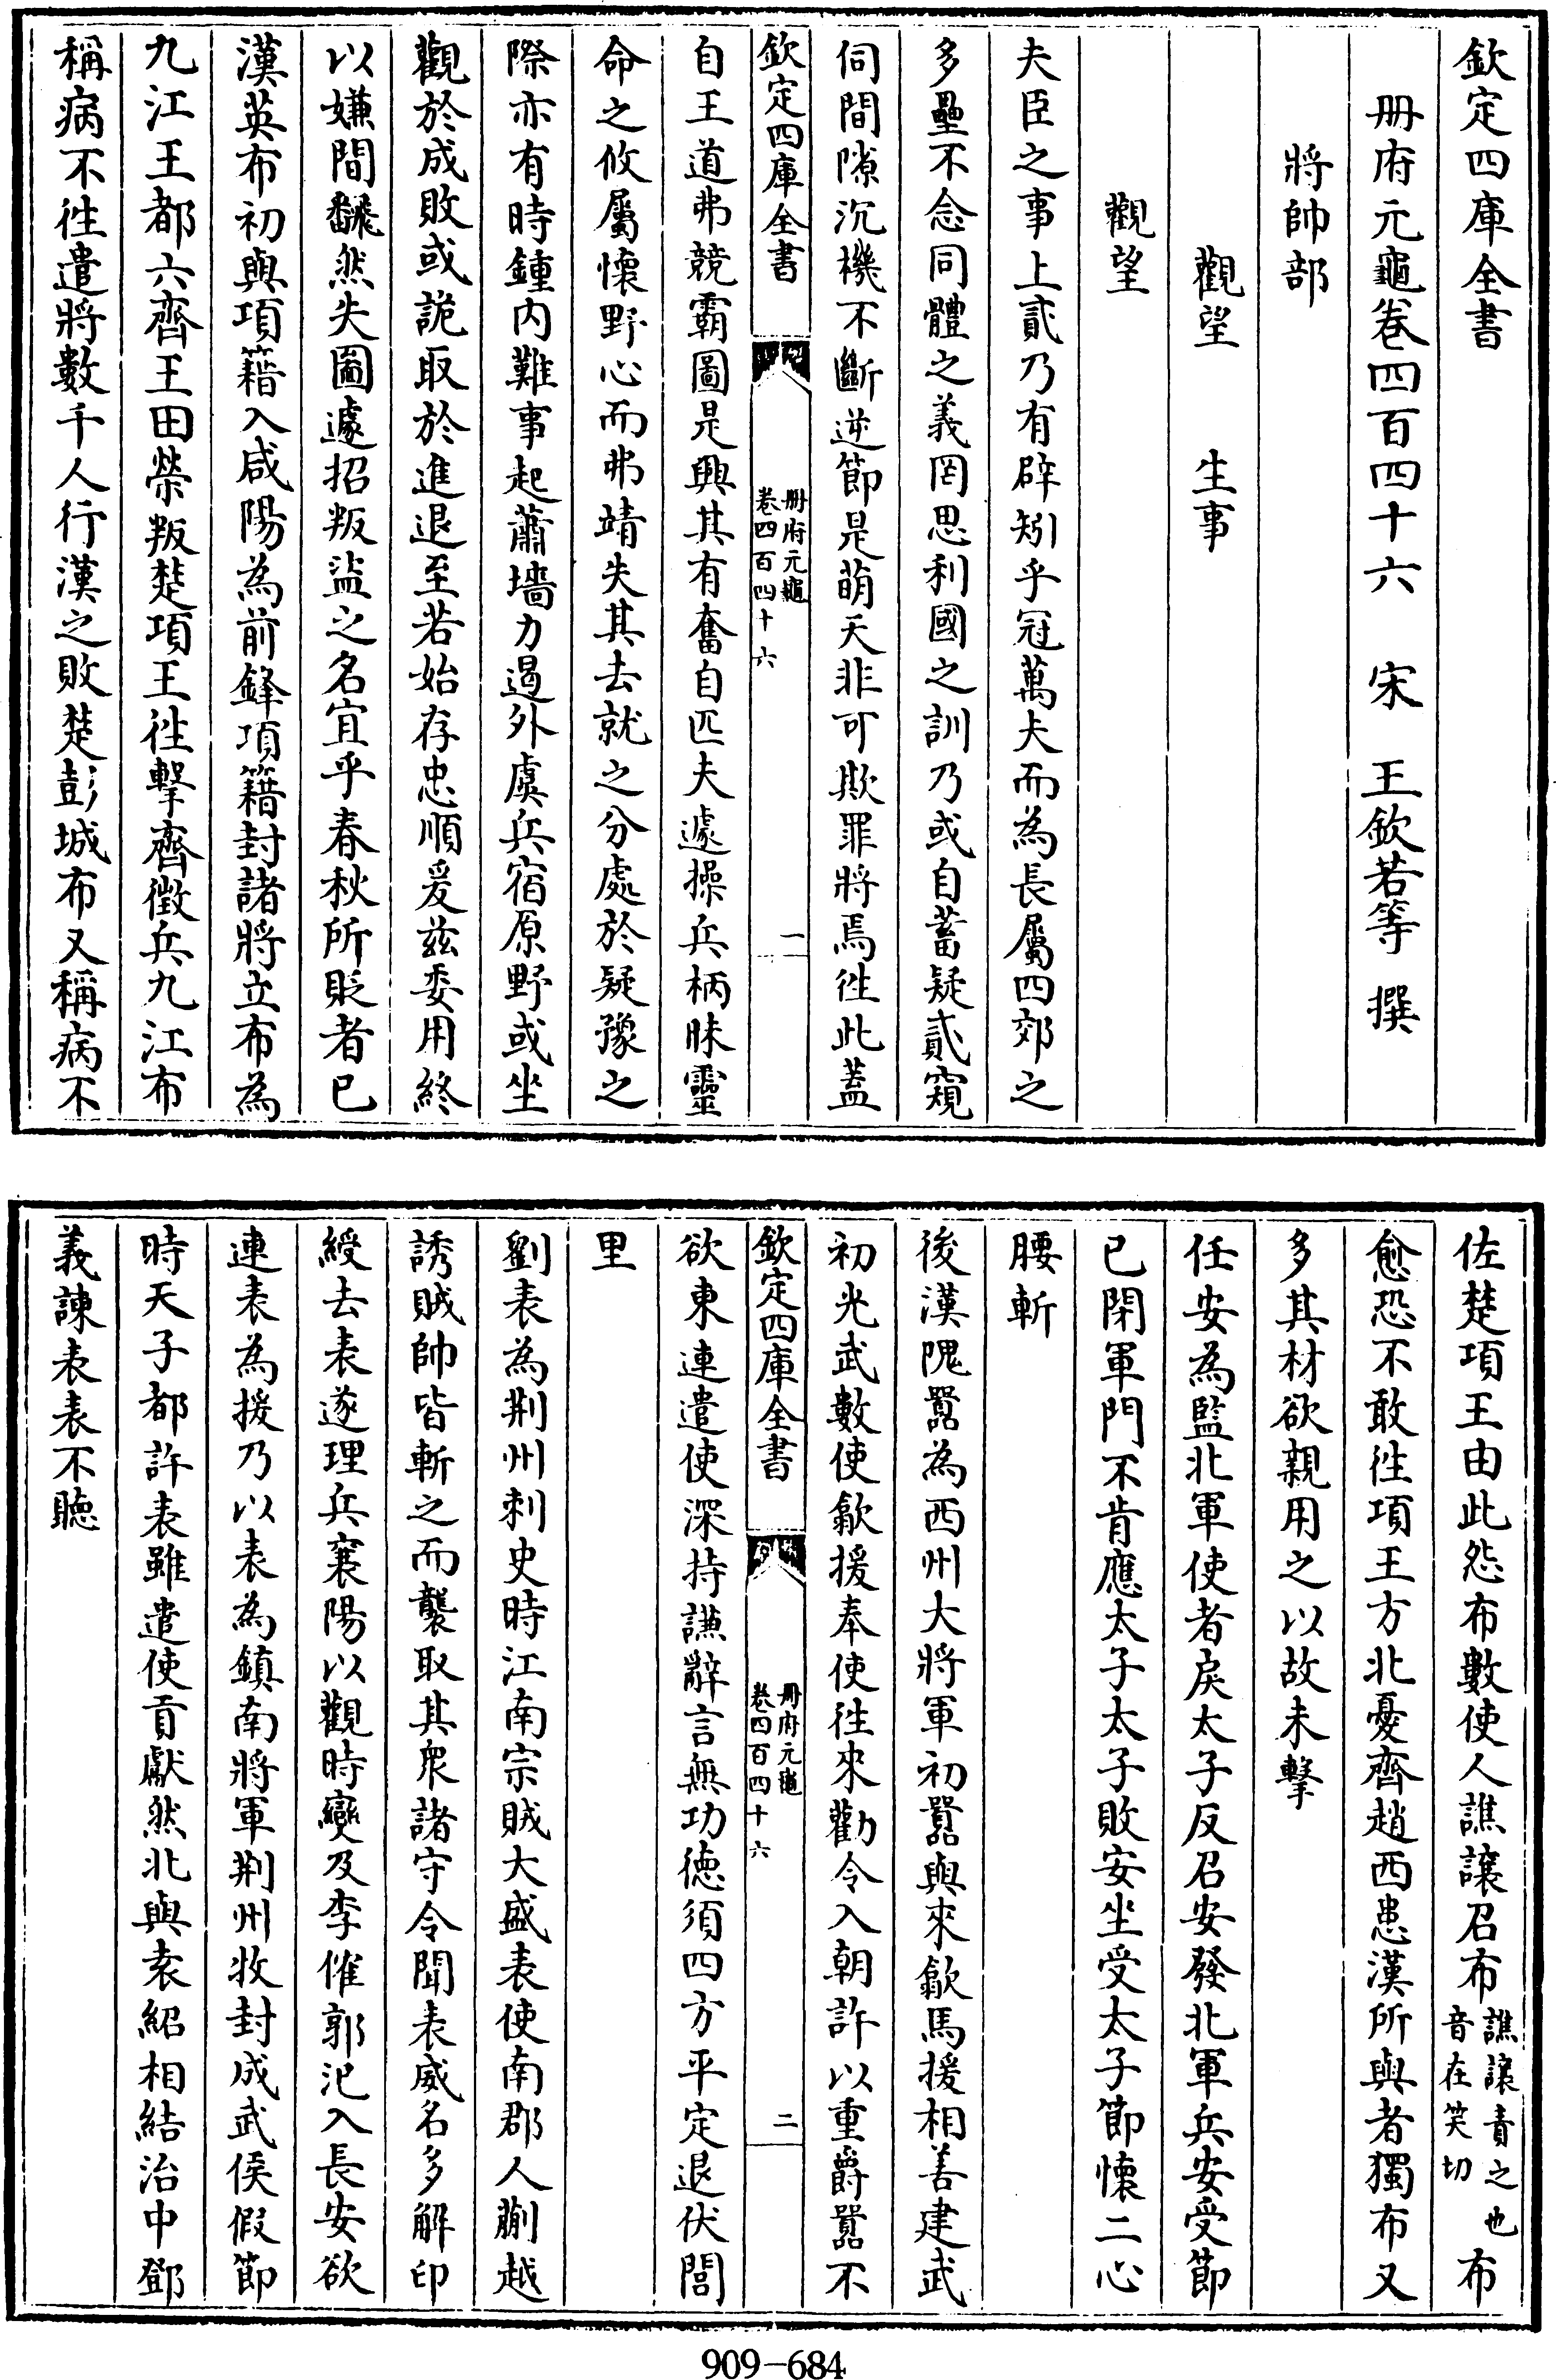 欽定四庫全書
册府元龜卷四百四十六　宋　王欽若等　撰
將帥部
觀望　生事
觀望
夫臣之事上貳乃有辟矧乎冠萬夫而為長屬四郊之
多壘不念同體之義罔思利國之訓乃或自蓄疑貳窺
伺間隙沉機不斷逆節是萌天非可欺罪將焉徃此蓋
欽定四庫全書
册府元龜
卷四百四十六
一
自王道弗競霸圖是興其有奮自匹夫遽操兵柄昧靈
命之攸屬懷野心而弗靖失其去就之分處於疑豫之
際亦有時鍾内難事起蕭墻力遏外虞兵宿原野或坐
觀於成敗或詭取於進退至若始存忠順爰兹委用終
以嫌間飜然失圖遽招叛盜之名宜乎春秋所貶者已
漢英布初與項籍入咸陽為前鋒項籍封諸將立布為
九江王都六齊王田榮叛楚項王徃擊齊徵兵九江布
稱病不徃遣將數千人行漢之敗楚彭城布又稱病不
佐楚項王由此怨布數使人譙讓召布譙讓責之也音在笑切布
愈恐不敢徃項王方北憂齊趙西患漢所與者獨布又
多其材欲親用之以故未擊
任安為監北軍使者戾太子反召安發北軍兵安受節
已閉軍門不肯應太子太子敗安坐受太子節懷二心
腰斬
後漢隗囂為西州大將軍初囂與來歙馬援相善建武
初光武數使歙援奉使徃來勸令入朝許以重爵囂不
欽定四庫全書
册府元龜
卷四百四十六
二
欲東連遣使深持謙辭言無功徳須四方平定退伏閭
里
劉表為荆州刺史時江南宗賊大盛表使南郡人蒯越
誘賊帥皆斬之而襲取其衆諸守令聞表威名多解印
綬去表遂理兵襄陽以觀時變及李傕郭汜入長安欲
連表為援乃以表為鎮南將軍荆州牧封成武侯假節
時天子都許表雖遣使貢獻然北與袁紹相結治中鄧
義諫表表不聽
909-684